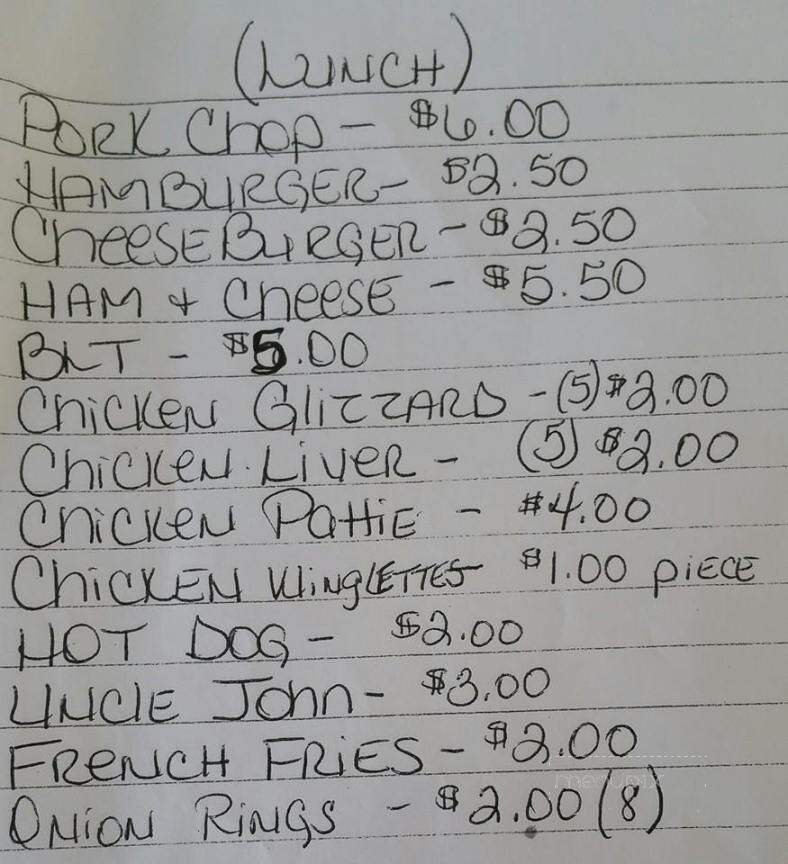 (LUNCH)
PORK Chop - $6.00
HAMBURGER - $2.50
CheeseBURGER - $2.50
HAM + Cheese - $5.50
BLT - $5.00
Chicken GlizzARD - (5) $2.00
Chicken Liver - (5) $2.00
Chicken Pattie - $4.00
Chicken WingLETTES - $1.00 piece
HOT DOG - $2.00
Uncle John - $3.00
FRENCH FRIES - $2.00
Onion Rings - $2.00 (8)